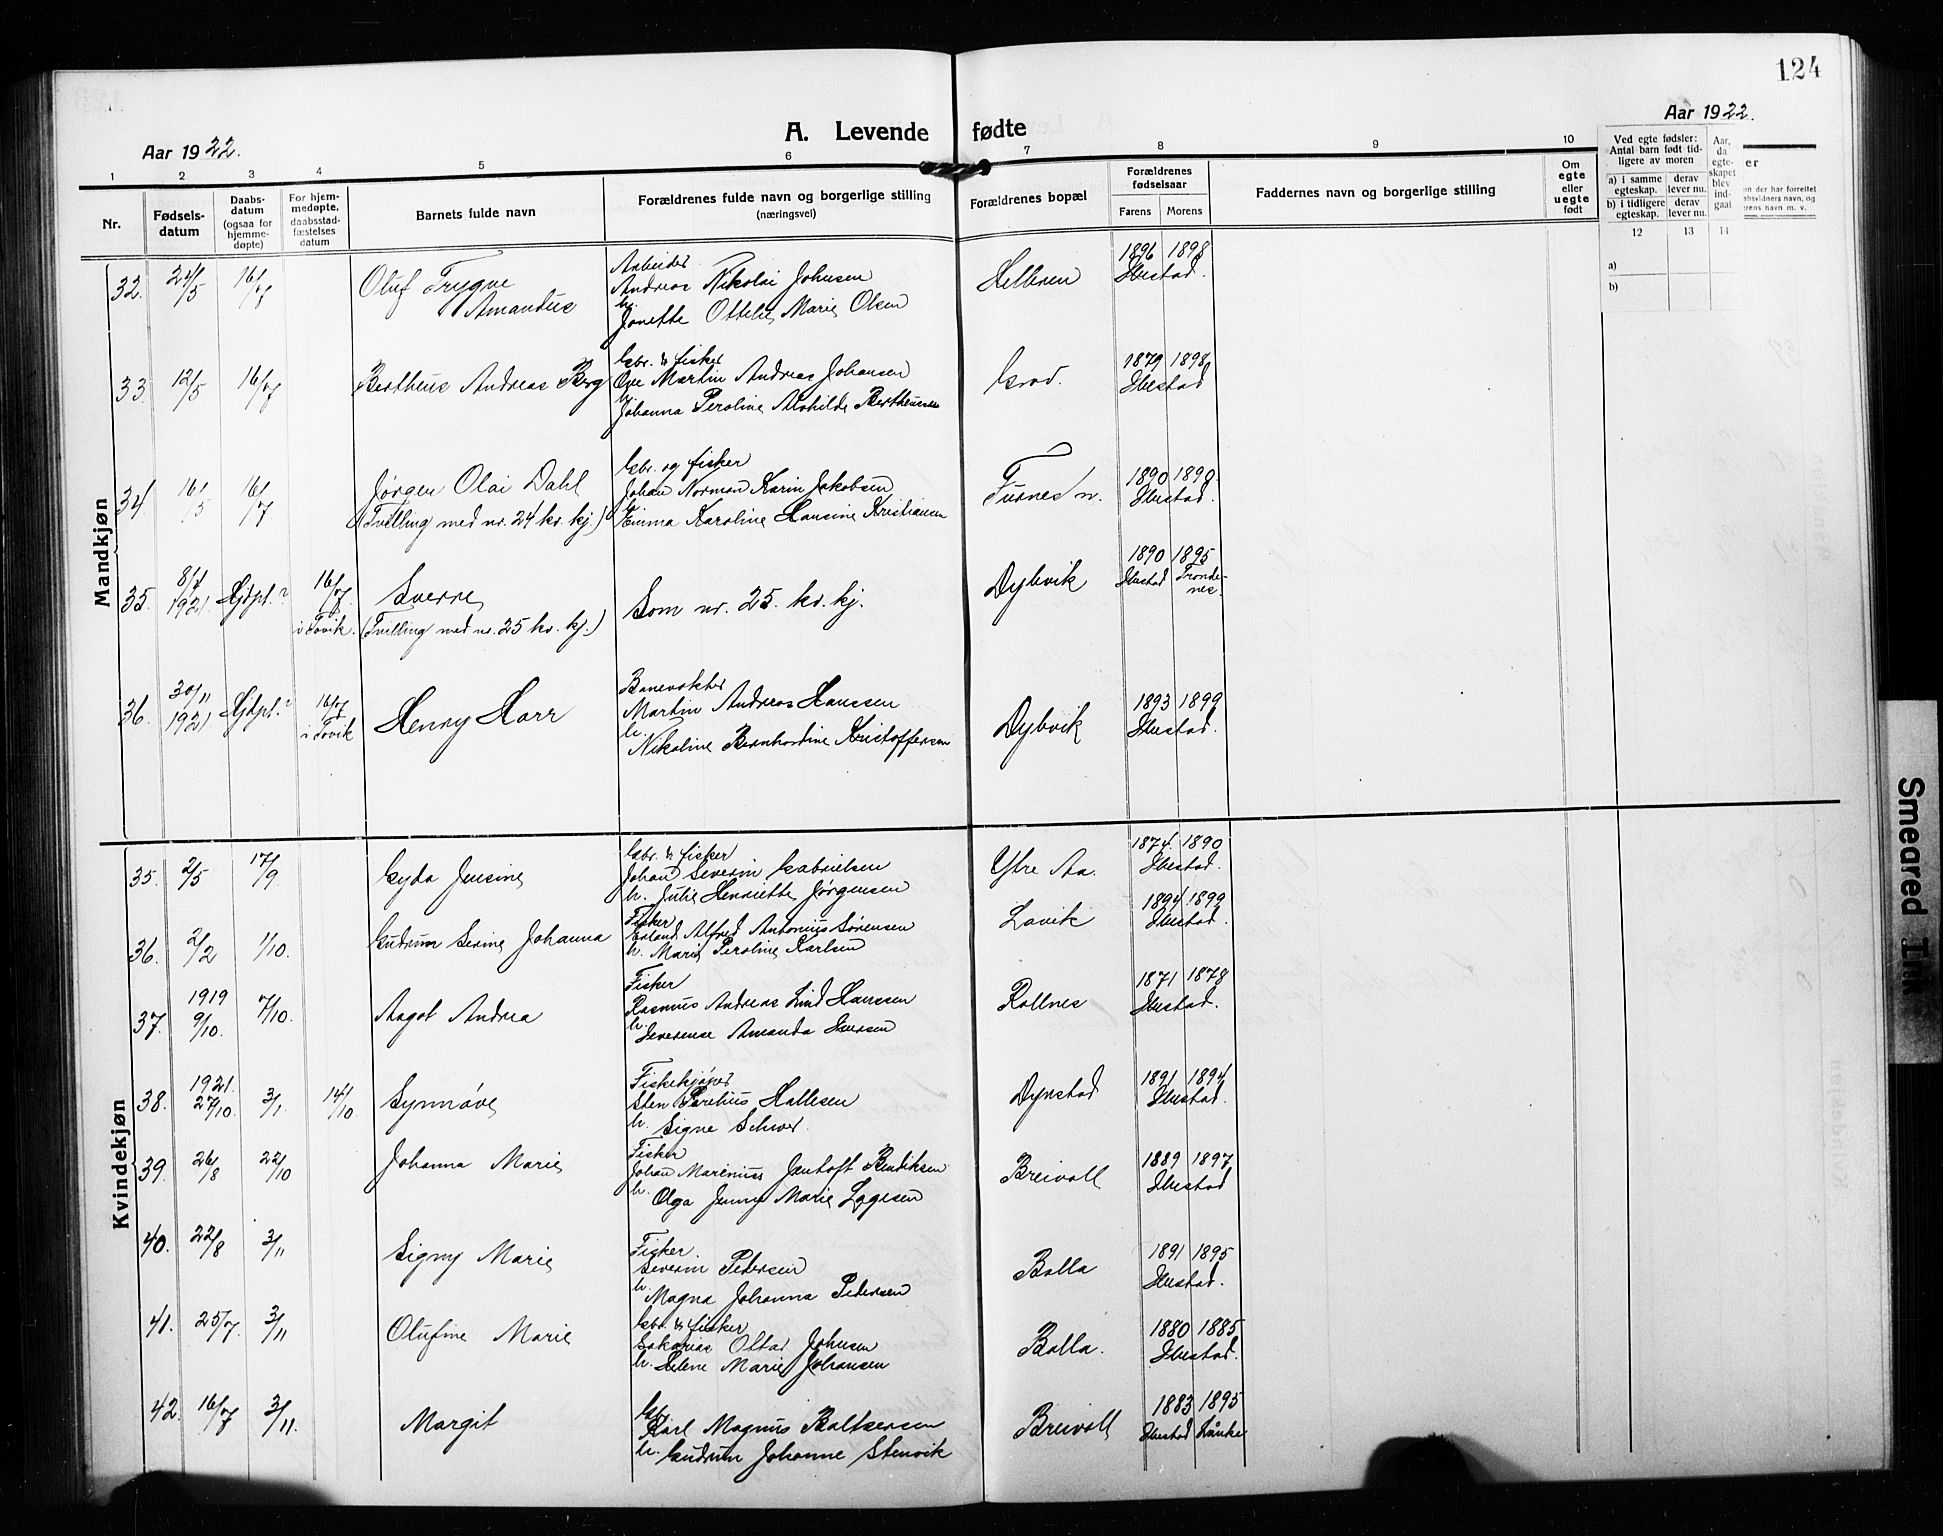 124
A. Levende fødte
Aar 1922.
Aar 1922.
1 2 3 4 5 6 7 8 9 10
Nr.
Fødsels-
datum
Daabs-
datum
(ogsaa for
hjemme-
døpte)
For hjem-
medøpte,
daabsstad-
fæstelses
datum
Barnets fulde navn
Forældrenes fulde navn og borgerlige stilling
(næringsvei)
Forældrenes bopæl
Forældrenes
fødselsaar
Farens Morens
Faddernes navn og borgerlige stilling
Om
egte
eller
uegte
født
Ved egte fødsler:
Antal barn født tid-
ligere av moren
a) i samme
egteskap.
derav
lever nu.
b) i tidligere
egteskap.
derav
lever nu.
Aar,
da
egte-
skapet
blev
ind-
gaat
12 13 14
a)
b)
er
n der har forrettet
absvidners navn, og
rens navn m. v.
Mandkjøn
32. 24/5 16/7 Oluf Trygve
Amandus
Arbeider
Andreas Nikolai Johnsen
h.
Janette Ottelie Marie Olsen
1896 1898
Ibestad.
33. 12/5 16/7 Bertheus Andreas Berg
Gbr. & fisker
Ove Martin Andreas Johansen
h.
Johanna Peroline Alvhilde Bertheussen
Grod.
1879 1898
Ibestad
34. 16/5 16/7 Jørgen Olai Dahl
(Tvilling med nr. 24 kv. kj.)
Gbr. og fisker
Johan Norman Karin Jakobsen
h.
Emma Karoline Hansine Kristiansen
Furnes n.
1890 1890
Ibestad.
35. 8/4
1921 Hjdpt.? 16/7
i Tovik.
Sverre
(Tvilling med nr. 25 kv. kj.)
Som nr. 25. kv. kj.
Dybvik
1890 1895
Ibestad Tronde-
nes.
36. 30/11
1921 Hjdpt.? 16/7
i Tovik
Henry Harr
Banevokter
Martin Andreas Hanssen
h.
Nikoline Bernhardine Kristoffersen
Dybvik
1893 1899
Ibestad.
Kvindekjøn
35. 2/5 17/9. Gyda Jensine
Gbr. & fisker
Johan Severin Gabrielsen
h. Julie Henriette Jørgensen
Ytre Aa.
1874. 1890
Ibestad.
36. 2/2 1/10. Gudrun Serine Johanna
Fisker
Erland Alfred Antonius Sørensen
h. Marie Peroline Karlsen
Lavik
1894 1899
Ibestad.
37. 1919
9/10. 7/10. Aagot Andrea
Fisker
Rasmus Andreas Lind Hanssen
h.
Severense Amanda Iversen
Rollnes
1871 1878
Ibestad.
38. 1921.
27/10. 3/1. 14/10 Synnøve
Fiskekjøper
Sten Parelius Hallesen
h. Signe Schwer
Dyrstad
1891 1894
Ibestad.
39. 26/8 22/10 Johanna Marie
Fisker
Johan Marenius Jentoft Bendiksen
h. Olga Jenny Marie Lagesen
Breivoll
1889 1897
Ibestad
40. 22/8 3/11 Signy Marie
Fisker
Severin Pedersen
h.
Magna Johanna Pedersen
Bolla
1891 1895
Ibestad.
41. 25/7. 3/11 Olufine Marie
Gbr. & fisker
Sakarias Oltar Johnsen
h. Helene Marie Johansen
Bolla.
1880 1885
Ibestad.
42. 16/7 3/11. Margit
Gbr.
Karl Magnus Baltsersen
h. Gudrun Johanne Stenvik
Breivoll
1883 1895
Ibestad Lånke
Smeared Ink